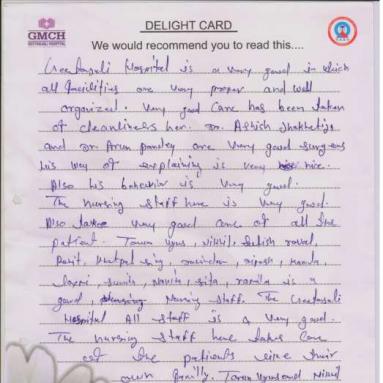 GMCH
GEETANJALI HOSPITAL
DELIGHT CARD
We would recommend you to read this....
Geetanjali Hospital is a very good in which
all facilities are very proper and well
organized. Very good Care has been taken
of cleanliness her. Dr. Ashish
and Dr Arun pandey are very good surgeons
his way of explaining is very nice.
Also his behavior is very good.
The nursing staff here is very good.
Also takes very good care of all the
patient. Tarun vyas, Nikhil,
sunita, sita, is a
good, Nursing Staff. The Geetanjali
Hospital All staff is a very good.
The nursing staff here takes Care
of the patients like their
own family. Tarun vyas and Nikhil